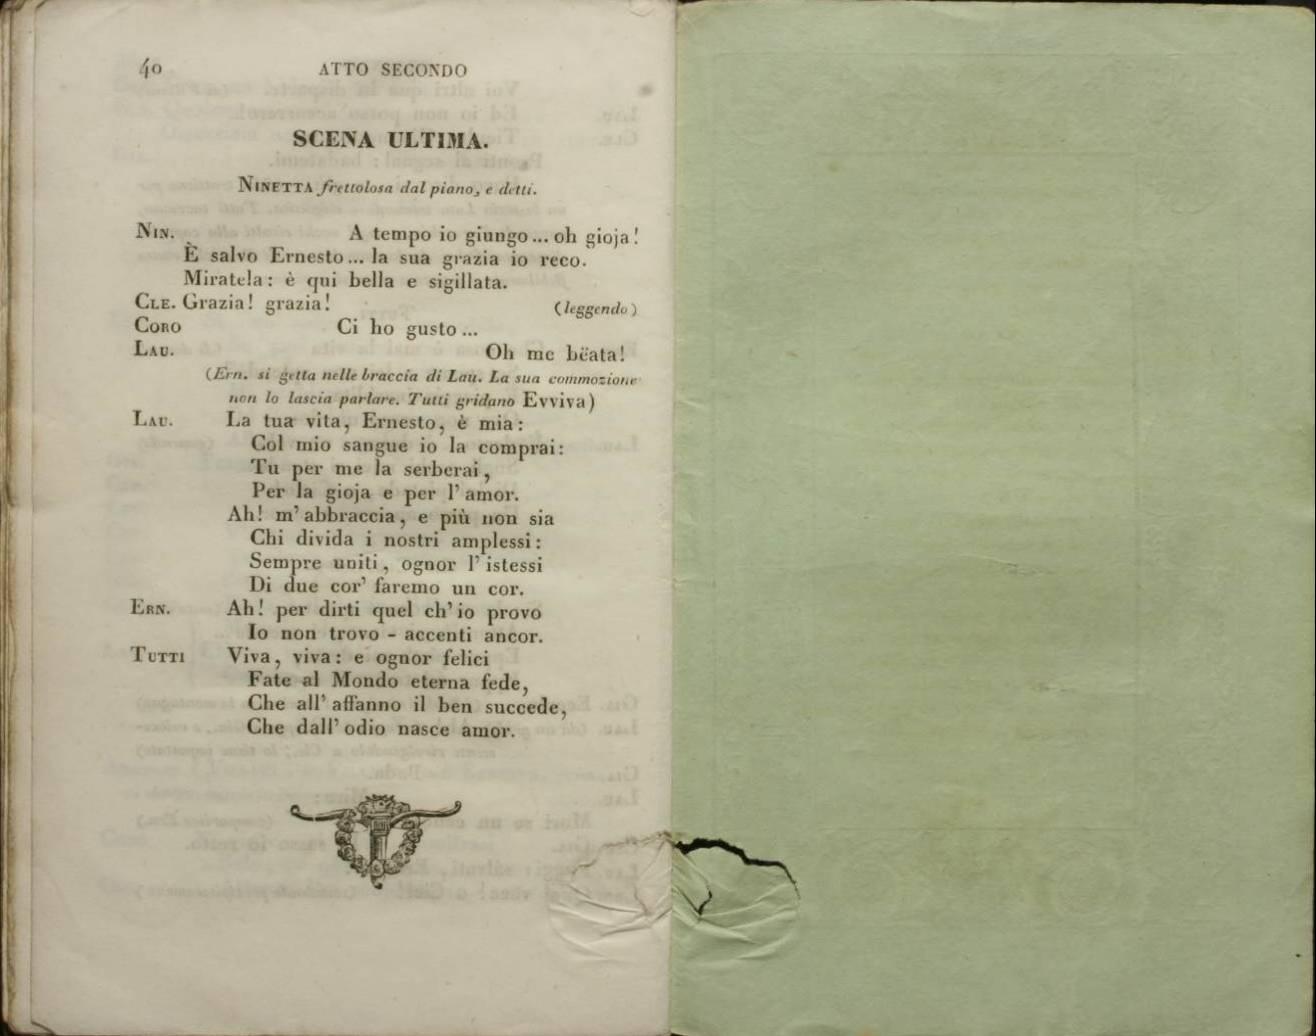 40 ATTO SECONDO
SCENA ULTIMA.
NINETTA frettolosa dal piano, e detti.
NIN. A tempo io giungo... oh gioja!
È salvo Ernesto... la sua grazia io reco.
Miratela: è qui bella e sigillata.
CLE. Grazia! grazia! (leggendo)
CORO Ci ho gusto...
LAU. Oh me bëata!
(Ern. si getta nelle braccia di Lau. La sua commozione
non lo lascia parlare. Tutti gridano Evviva)
LAU. La tua vita, Ernesto, è mia:
Col mio sangue io la comprai:
Tu per me la serberai,
Per la gioja e per l'amor.
Ah! m'abbraccia, e più non sia
Chi divida i nostri amplessi:
Sempre uniti, ognor l'istessi
Di due cor' faremo un cor.
ERN. Ah! per dirti quel ch'io provo
Io non trovo - accenti ancor.
TUTTI Viva, viva: e ognor felici
Fate al Mondo eterna fede,
Che all'affanno il ben succede,
Che dall'odio nasce amor.